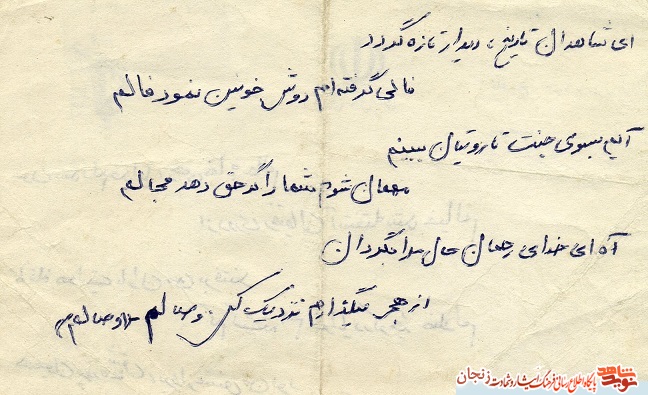 ای شاهدان تاریخ، دیدار تازه گردد
فالی گرفته‌ام دوش خونین نمود فالم
آیم بسوی جنت تا رویتان ببینم
مهمان شوم شما را گر حق دهد مجالم
آه ای خدای رحمان حال مرا بگردان
از هجر میگدازم نزدیک کن وصالم «وصالم»
نوید شاهد
پایگاه اطلاع رسانی فرهنگ ایثار و شهادت زنجان